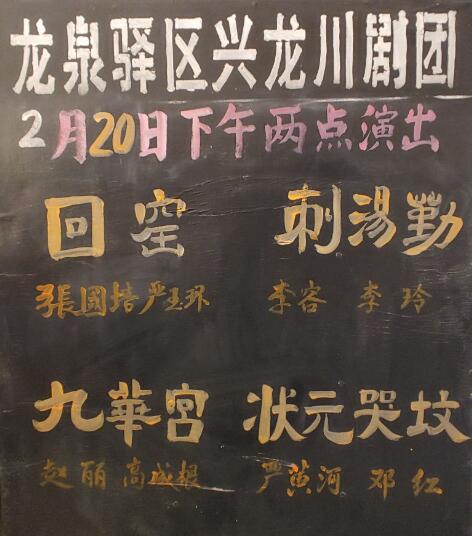 龙泉驿区兴龙川剧团
2月20日下午两点演出
回窑 刺湯勤
張國培 严玉环 李容 李玲
九華宫 状元哭坟
赵丽 高成根 严黄河 邓红